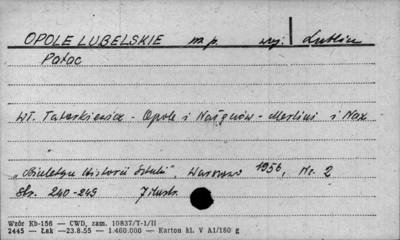 OPOLE LUBELSKIE m.p. woj. Lublin
Pałac
Wł. Tatarkiewicz - Opole i Nałęczów - Merlini i Nax
„Biuletyn Historii Sztuki", Warszawa 1956, Nr. 2
Str. 240-249 Ilustr.
Wzór Kb-156 — CWD, zam. 10837/T-1/II
2445 — Łak —23.8.55 — 1.460.000 — Karton kl. V A1/180 g